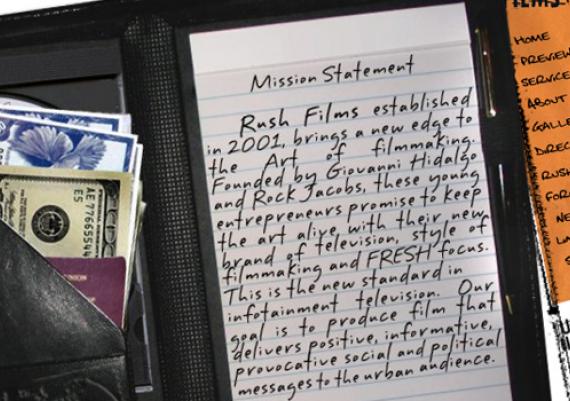 Mission Statement
Rush Films established
in 2001, brings a new edge to
the Art of filmmaking.
Founded by Giovanni Hidalgo
and Rock Jacobs, these young
entrepreneurs promise to keep
the art alive, with their new
brand of television, style of
filmmaking and FRESH focus.
This is the new standard in
infotainment television. Our
goal is to produce film that
delivers positive, informative,
provocative social and political
messages to the urban audience.
HOME
ABOUT